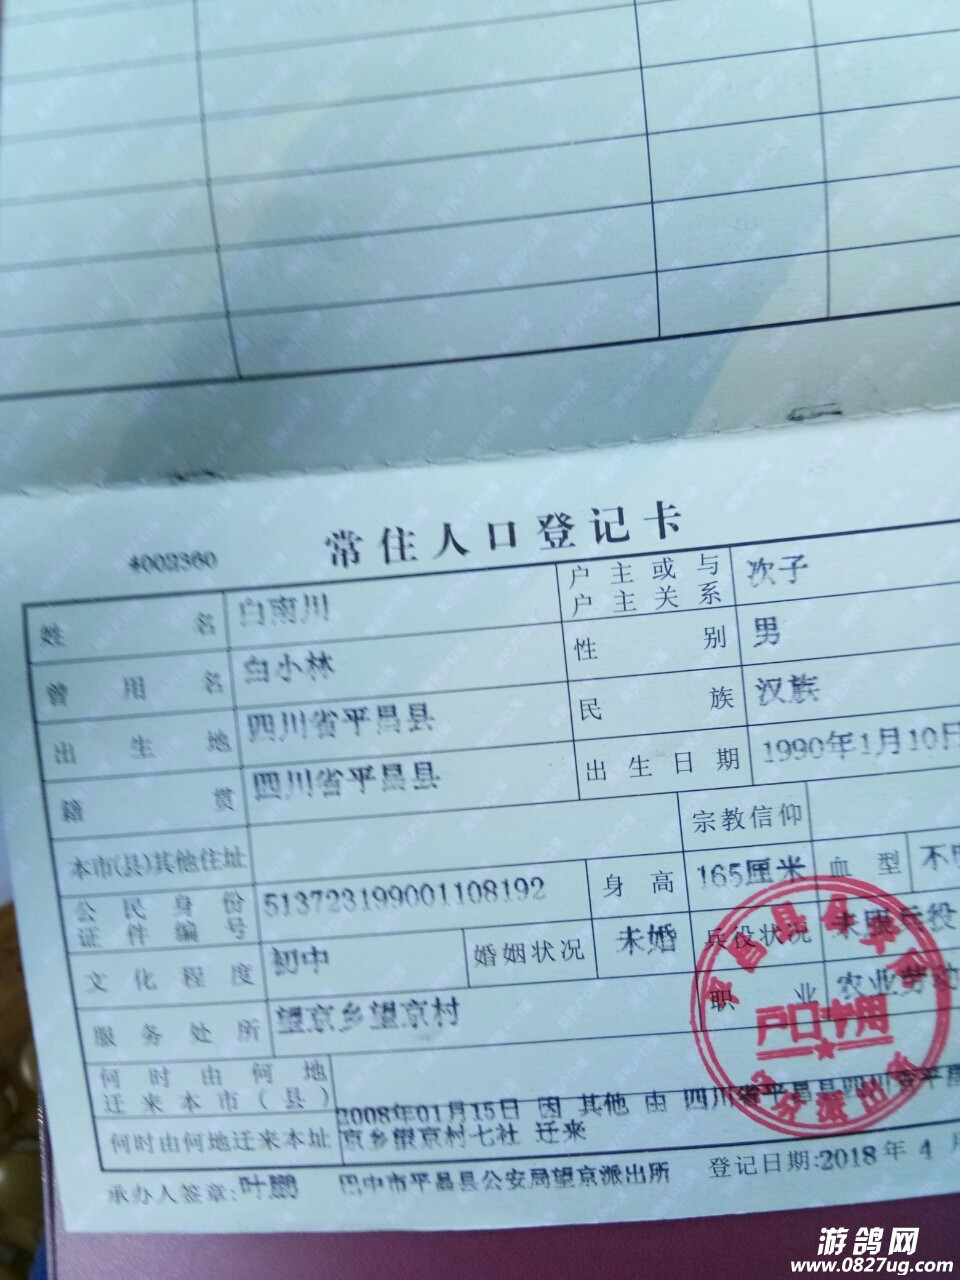 4002360
常住人口登记卡
姓名 白南川 户主或与户主关系 次子
曾用名 白小林 性别 男
出生地 四川省平昌县 民族 汉族
籍贯 四川省平昌县 出生日期 1990年1月10日
本市(县)其他住址 宗教信仰
公民身份证件编号 513723199001108192 身高 165厘米 血型 不
文化程度 初中 婚姻状况 未婚 兵役状况 未服兵役
服务处所 望京乡望京村 职业 农业劳动
何时由何地迁来本市(县) 2008年01月15日 因 其他 由 四川省平昌县四川省平昌
何时由何地迁来本址 京乡望京村七社 迁来
承办人签章:叶鹏 巴中市平昌县公安局望京派出所 登记日期:2018年4月
户口专用
游鸽网
www.0827ug.com